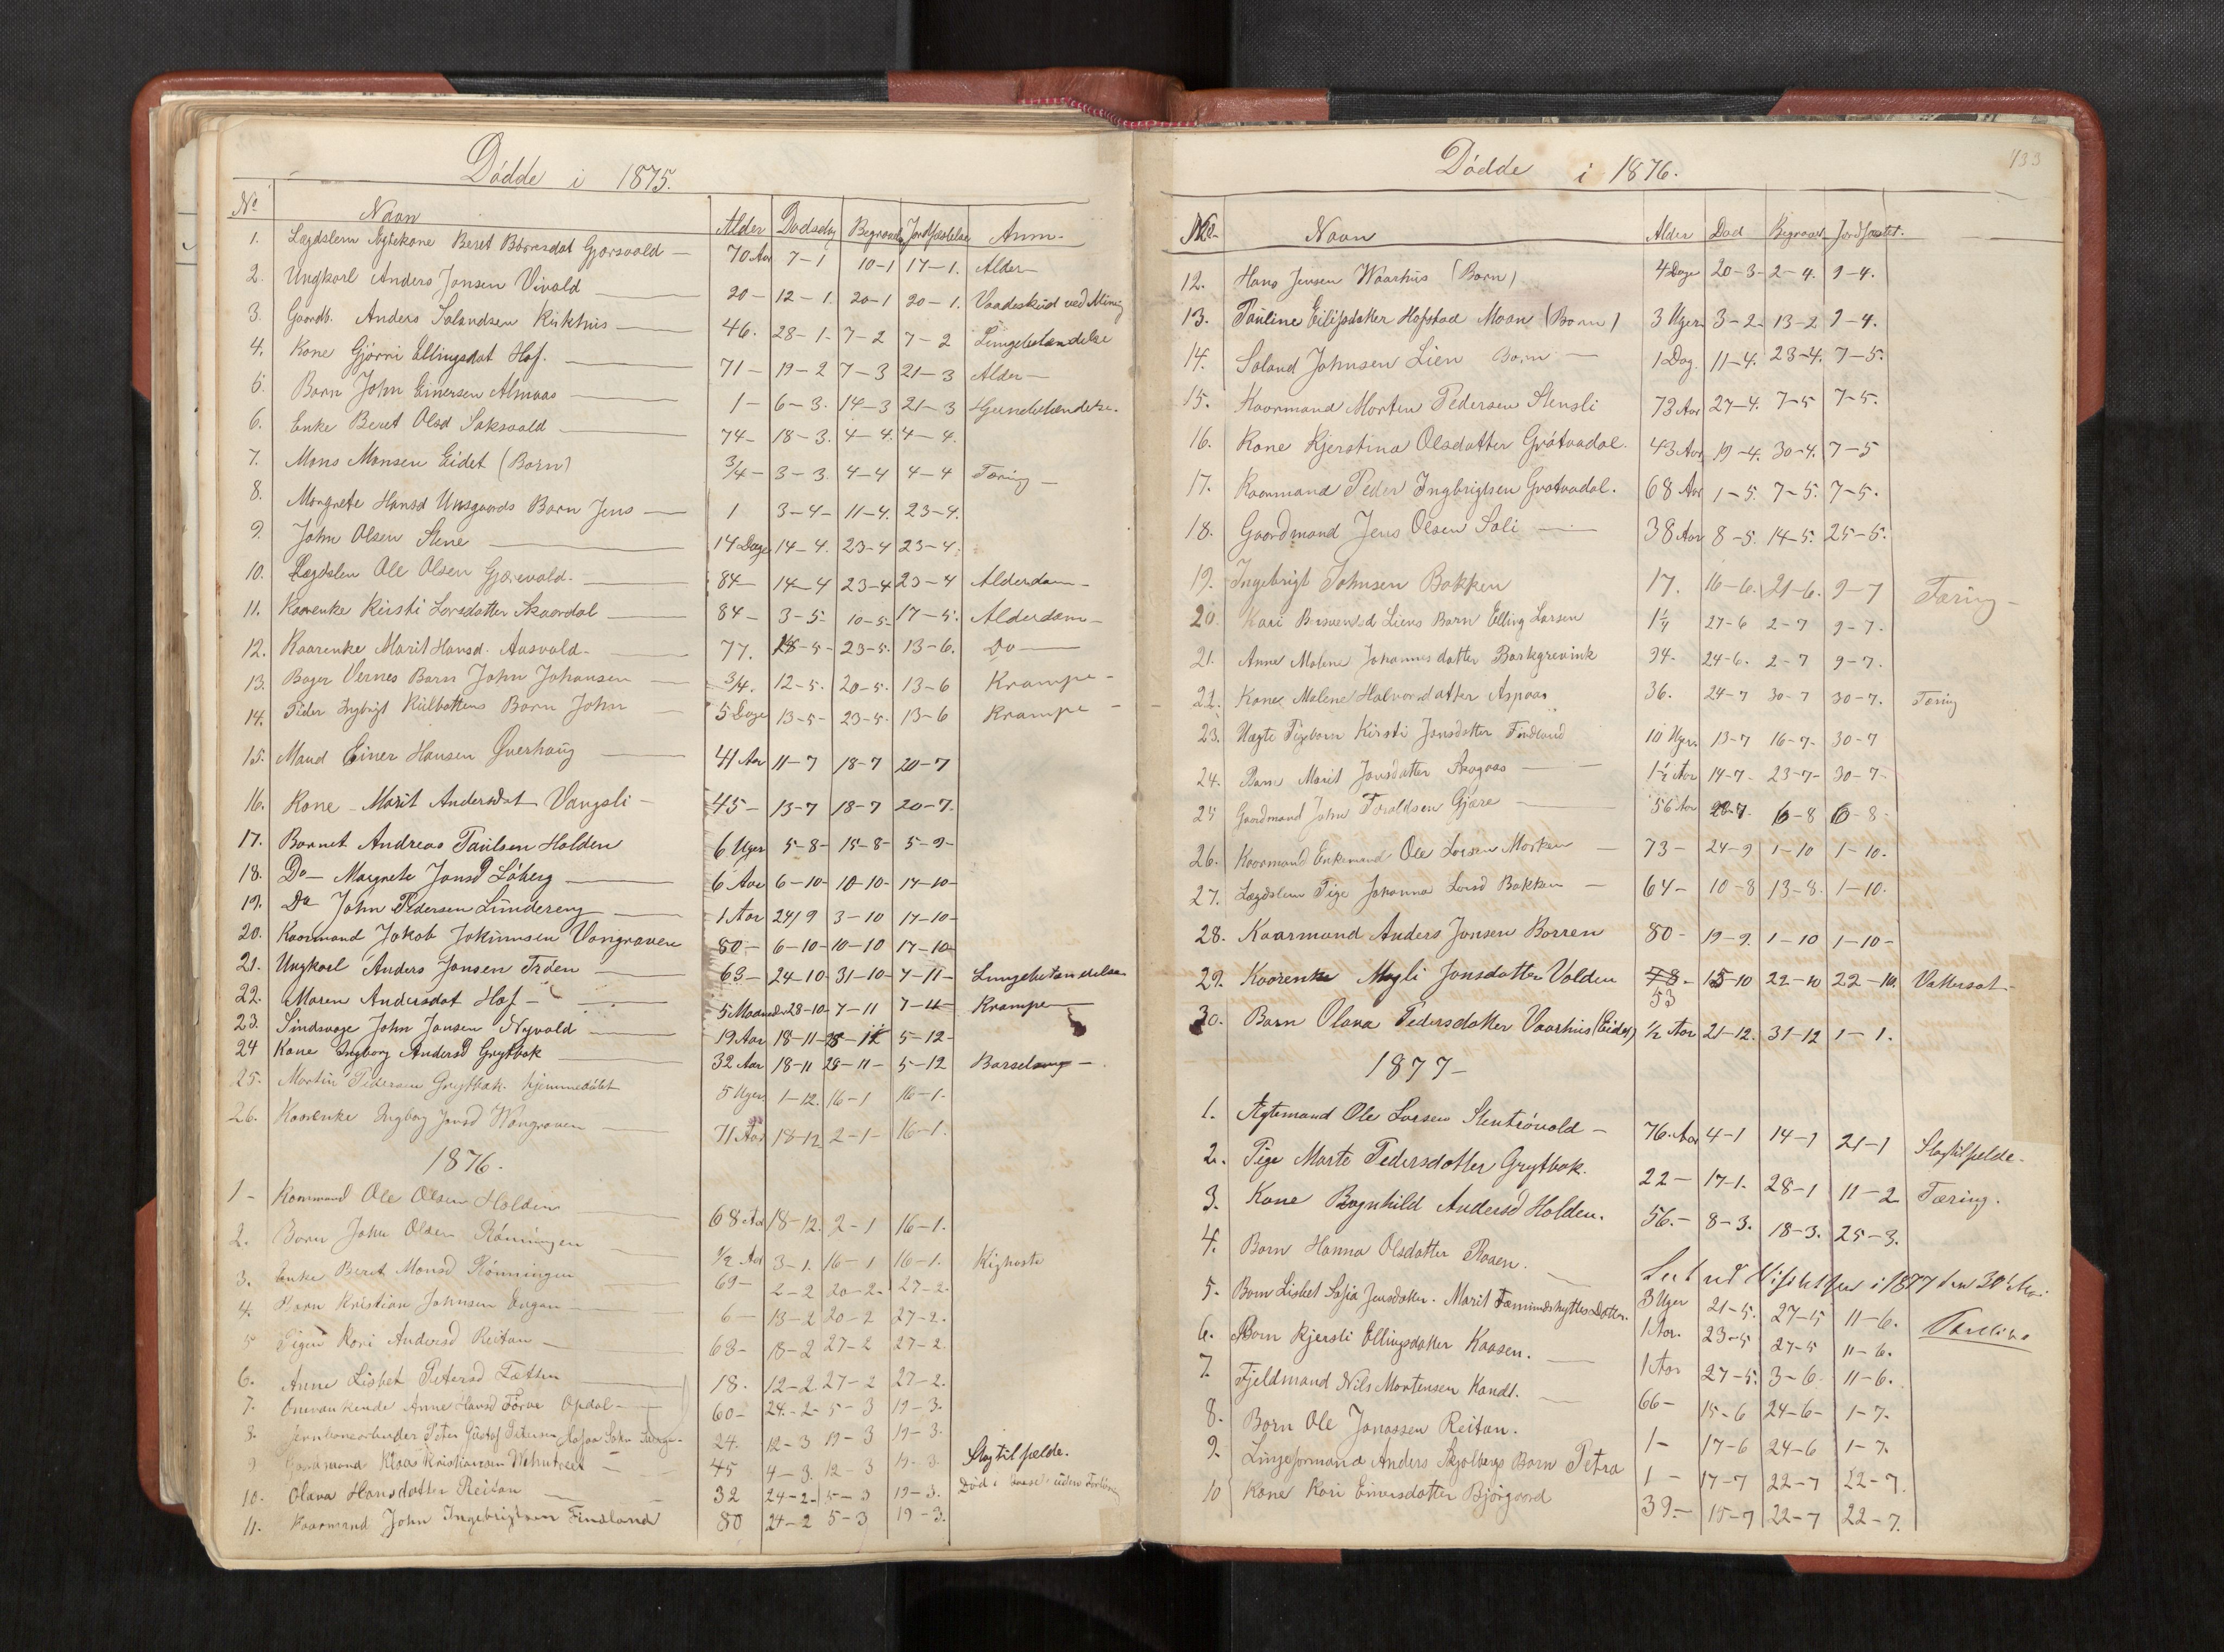 Dödde i 1875.
No Navn Alder Dødsdag Begravelse Jordfæstelse Anm.
1. Lægdslem Ægtekone Beret Bårnsdat Gjørsvold 70 Aar 7-1 10-1 17-1. Alder
2. Ungkarl Anders Jonsen Vivold 20 - 12-1. 20-1 20-1. Vaadeskud ved Mining
3. Gaardb. Anders Salandsen Kirkhus 46. 28-1. 7-2 7-2 Lungebetændelse
4. Kone Gjörni Ellingsdat Hof. 71 - 19-2 7-3 21-3 Alder
5. Barn John Einersen Almaas 1 - 6-3. 14-3 21-3
6. Enke Beret Olsd Saksvold 74 - 18-3. 4-4. 4-4.
7. Mons Monsen Eidet (Barn) 3/4 - 3-3. 4-4 4-4 Tæring
8. Margrete Hansd Unsgaards Barn Jens 1 3-4 - 11-4. 23-4.
9. John Olsen Stene 14 Dage 14-4. 23-4 23-4.
10. Lægdslem Ole Olsen Gjærvold. 84 - 14-4 23-4 23-4 Alderdom
11. Kaarenke Kirsti Larsdatter Skaardal 84 - 3-5 - 10-5 - 17-5. Alderdom
12. Kaarenke Marit Hansd. Aasvold 77. 18-5 - 23-5. 13-6. Do
13. Bager Vernes Barn John Johansen 3/4. 12-5. 20-5. 13-6 Krampe
14. Peder Ingbrigt Kulbottens Barn John 5 Dage 13-5 - 23-5. 13-6 Krampe
15. Mand Einer Hansen Qverhaug 41 Aar 11-7 18-7 20-7
16. Kone Marit Andersdat Vangsli 45 - 13-7 18-7 20-7.
17. Barnet Andreas Paulsen Holden 6 Uger 5-8 - 15-8 - 5-9 -
18. Do - Margrete Jonsd Löberg 6 Aar 6-10 - 10-10 - 17-10 -
19. Do John Pedersen Lundereng 1 Aar 24/9 3-10 17-10 -
20. Kaarmand Jakob Jokumsen Vongraven 80 - 6-10 - 10-10 17-10
21. Ungkarl Anders Jonsen Tröen 63 - 24-10 - 31-10 - 7-11 - Lungebetændelse
22. Maren Andersdat Hof - 5 Maaneder 28-10 - 7-11 7-11 - Krampe
23. Sindsvage John Jonsen Nyvold 19 Aar 18-11 5-12 -
24 Kone Ingborg Andersd Grytbak 32 Aar 18-11 28-11 - 5-12 Barselseng -
25. Martin Pedersen Grytbak hjemmedöbt 5 Uger 1-12. 16-1 16-1.
26. Kaarenke Ingborg Jonsd Wongraven 71 Aar 18-12 2-1 - 16-1.
1876.
1 - Kaarmand Ole Olsen Holden 68 Aar 18-12. 2-1 16-1.
2. Barn John Olsen Rönningen 1/2 Aar 3-1. 16-1 16-1. Kighoste
3. Enke Beret Monsd Rönningen 69 - 2-2 20-2 - 27-2.
4. Barn Kristian Johnsen Engan 6 - 13-2 20-2 27-2.
5 Pigen Kari Andersd Reitan 63 - 18-2 27-2 27-2.
6. Anne Lisbet Petersd Tætten 18. 12-2. 27-2 27-2.
7. Omvankende Anne Hansd Förve Opdal 60 - 24-2 - 5-3 19-3.
8. Jernbanearbeider Peter Gustaf Petersen 24. 12-3 19-3 19-3.
9 Gaardmand Klaas Kristiansen 45 4-3. 12-3 19-3. Slagtilfælde.
10. Olava Hansdatter Reitan 32 24-2 - 5-3 19-3. Död i Barsel. uden Forlösn
11. Kaarmand John Ingebrigtsen Findland 80 24-2 5-3 19-3.
133
Dödde i 1876.
No Navn Alder Död Begravet Jordfæstet.
12. Hans Jensen Waarhus (Barn) 4 Dage 20-3 - 2-4. 9-4.
13. Pauline Eilifsdatter Hofstad Moan (Barn) 3 Uger 3-2 - 13-2 9-4.
14. Saland Johnsen Lien Barn 1 Dag. 11-4. 23-4. 7-5.
15. Kaarmand Morten Pedersen Stensli 73 Aar 27-4. 7-5 7-5.
16. Kone Kjerstina Olsdatter Grötvadal. 43 Aar 19-4. 30-4. 7-5
17. Kaarmand Peder Ingbrigtsen Grøtvadal. 68 Aar 1-5. 7-5. 7-5.
18. Gaardmand Jens Olsen Soli 38 Aar 8-5. 14-5. 25-5.
19. Ingebrigt Johnsen Bakken 17. 16-6. 21-6. 9-7 Tæring
20. Kari Liens Barn Elling Larsen 1 1/4 27-6 2-7 9-7.
21. Anne Malene Johannesdatter Borkgrevink 34. 24-6. 2-7 9-7.
22. Kone Malene Halvorsdatter Aspaas 36. 24-7 30-7 30-7. Tæring
23. Uægte Pigebarn Kirsti Jonsdatter Findland 10 Uger. 13-7 16-7 - 30-7
24. Barn Marit Jonsdatter Skogaas 1 1/2 Aar 14-7 - 23-7 - 30-7
25 Gaardmand John Taraldsen Gjære 56 Aar 28-7. 6-8 6-8 -
26. Kaarmand Enkemand Ole Larsen Morken 73 - 24-9 1-10 1-10.
27. Lægdslem Pige Johanna Larsd Bakken 64 - 10-8 13-8. 1-10.
28. Kaarmand Anders Jonsen Borren 80 - 19-9. 1-10 1-10 -
29. Kaarenke Magli Jonsdatter Volden 78 - 15-10 22-10 22-10. Vattersot
53
30. Barn Olava Pedersdatter Vaarhus (Eidet) 1/2 Aar 21-12. 31-12 1-1.
1877 -
1. Ægtemand Ole Larsen Stentrövold - 76. Aar 4-1 14-1 21-1 Slagtilfælde.
2. Pige Marte Pedersdatter Grytbak. 22 - 17-1. 28-1 11-2 Tæring.
3. Kone Ragnhild Andersd Holden. 56. - 8-3. 18-3. 25-3.
4. Barn Hanna Olsdatter Raaen.
5. Barn Lisbet Sofia Jensdatter. Marit Fæmundshyttes Datter. 3 Uger 21-5. 27-5 11-6.
6. Barn Kjersti Ellingsdatter Kaasen. 1 Aar. 23-5 27-5 11-6.
7. Fjeldmand Nils Mortensen Kandt. 1 Aar 27-5. 3-6. 11-6.
8. Barn Ole Jonassen Reitan. 66 - 15-6 24-6 - 1-7.
9. Linjeformand Anders Skjølbergs Barn Petra 1 - 17-6 24-6 1-7.
10 Kone Kari Einersdatter Björgaard 1 - 17-7 22-7 22-7.
39. - 15-7 22-7 22-7.